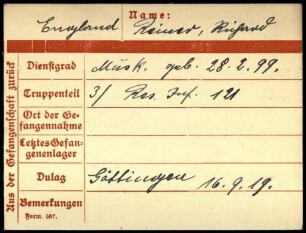 England
Name:
Reiner, Richard
Dienstgrad
Musk. geb. 28.2.99.
Truppenteil
3/ Res. Inf. 121
Ort der Ge-
fangennahme
Letztes Gefan-
genenlager
Dulag
Göttingen 16.9.19.
Bemerkungen
Form. 587.
Aus der Gefangenschaft zurück